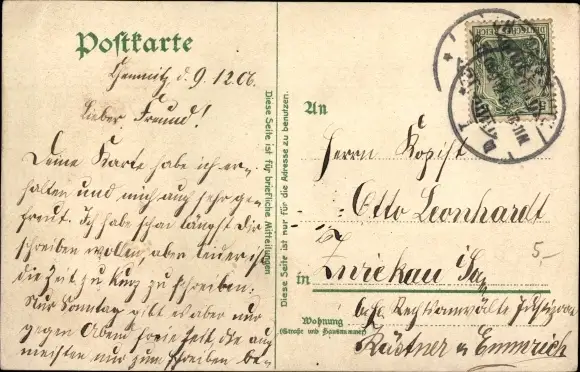 Postkarte
Chemnitz d. 9.12.06.
Lieber Freund!
Deine Karte habe ich er-
halten und mich auch sehr ge-
freut. Ich habe schon längst Dir
schreiben wollen, aber leider ist
die Zeit zu kurz zu schreiben.
Nur Sonntag gibt es aber nur
gegen Abend freie Zeit, die auch
meisten nur zum schreiben be-
Diese Seite ist für briefliche Mitteilungen
Diese Seite ist nur für die Adresse zu benutzen.
DEUTSCHES REICH
An
Herrn Kopist
Otto Leonhardt
in Zwickau i/Sa
Wohnung
(Straße und Hausnummer)
Rechtsanwälte
Küstner & Emmrich
5-